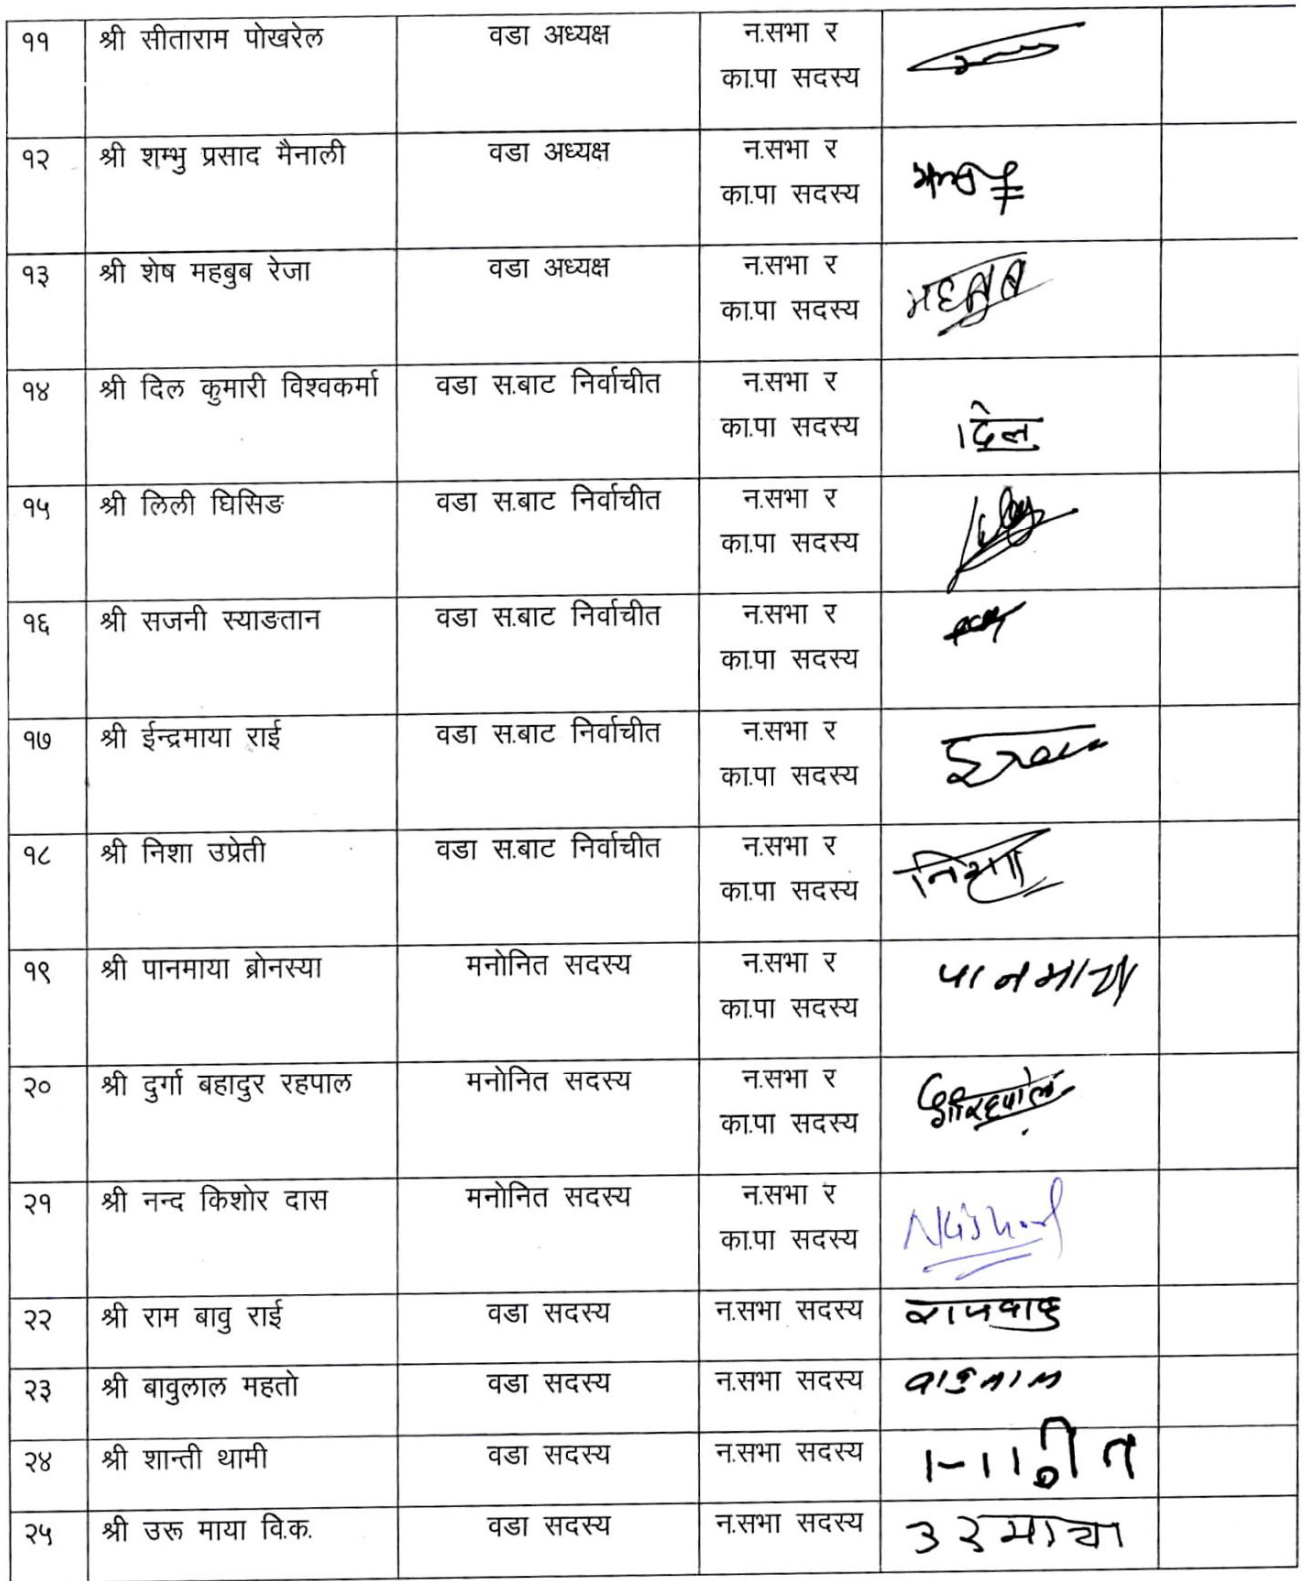 ११ श्री सीताराम पोखरेल वडा अध्यक्ष न.सभा र
का.पा सदस्य
१२ श्री शम्भु प्रसाद मैनाली वडा अध्यक्ष न.सभा र
का.पा सदस्य
१३ श्री शेष महबुब रेजा वडा अध्यक्ष न.सभा र
का.पा सदस्य महबुब
१४ श्री दिल कुमारी विश्वकर्मा वडा स.बाट निर्वाचीत न.सभा र
का.पा सदस्य दिल
१५ श्री लिली घिसिङ वडा स.बाट निर्वाचीत न.सभा र
का.पा सदस्य
१६ श्री सजनी स्याङतान वडा स.बाट निर्वाचीत न.सभा र
का.पा सदस्य
१७ श्री ईन्द्रमाया राई वडा स.बाट निर्वाचीत न.सभा र
का.पा सदस्य
१८ श्री निशा उप्रेती वडा स.बाट निर्वाचीत न.सभा र
का.पा सदस्य निशा
१९ श्री पानमाया ब्रोनस्या मनोनित सदस्य न.सभा र पानमाया
का.पा सदस्य
२० श्री दुर्गा बहादुर रहपाल मनोनित सदस्य न.सभा र
का.पा सदस्य
२१ श्री नन्द किशोर दास मनोनित सदस्य न.सभा र
का.पा सदस्य
२२ श्री राम बावु राई वडा सदस्य न.सभा सदस्य
२३ श्री बावुलाल महतो वडा सदस्य न.सभा सदस्य
२४ श्री शान्ती थामी वडा सदस्य न.सभा सदस्य
२५ श्री उरू माया वि.क. वडा सदस्य न.सभा सदस्य उरमाया